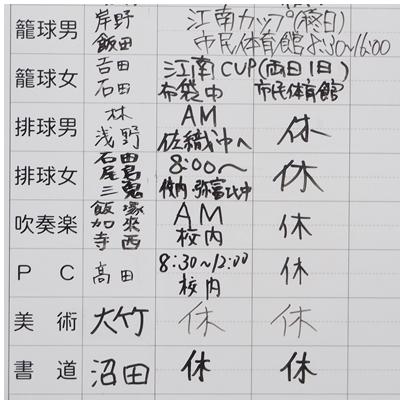 籠球男 岸野 江南カップ(終日)
飯田 市民体育館 8:30~16:00
籠球女 吉田 江南CUP(両日1日)
石田 布袋中 市民体育館
排球男 林 AM 休
浅野 佐織中へ
排球女 石田 8:00~ 休
尾関
三鬼 校内・弥富北中
吹奏楽 飯塚 AM 休
加來
寺西 校内
PC 高田 8:30~12:00 休
校内
美術 大竹 休 休
書道 沼田 休 休